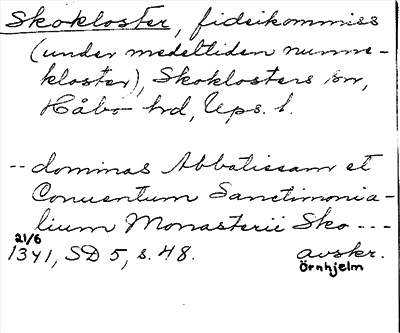 Skokloster, fideikommiss
(under medeltiden nunne-
kloster), Skoklosters sn,
Håbo hd, Ups. l.
-- dominas Abbatissam et
Conuentum Sanctimonia-
lium Monasterii Sko ---
21/6
1341, SD 5, s. 48. avskr.
Örnhjelm